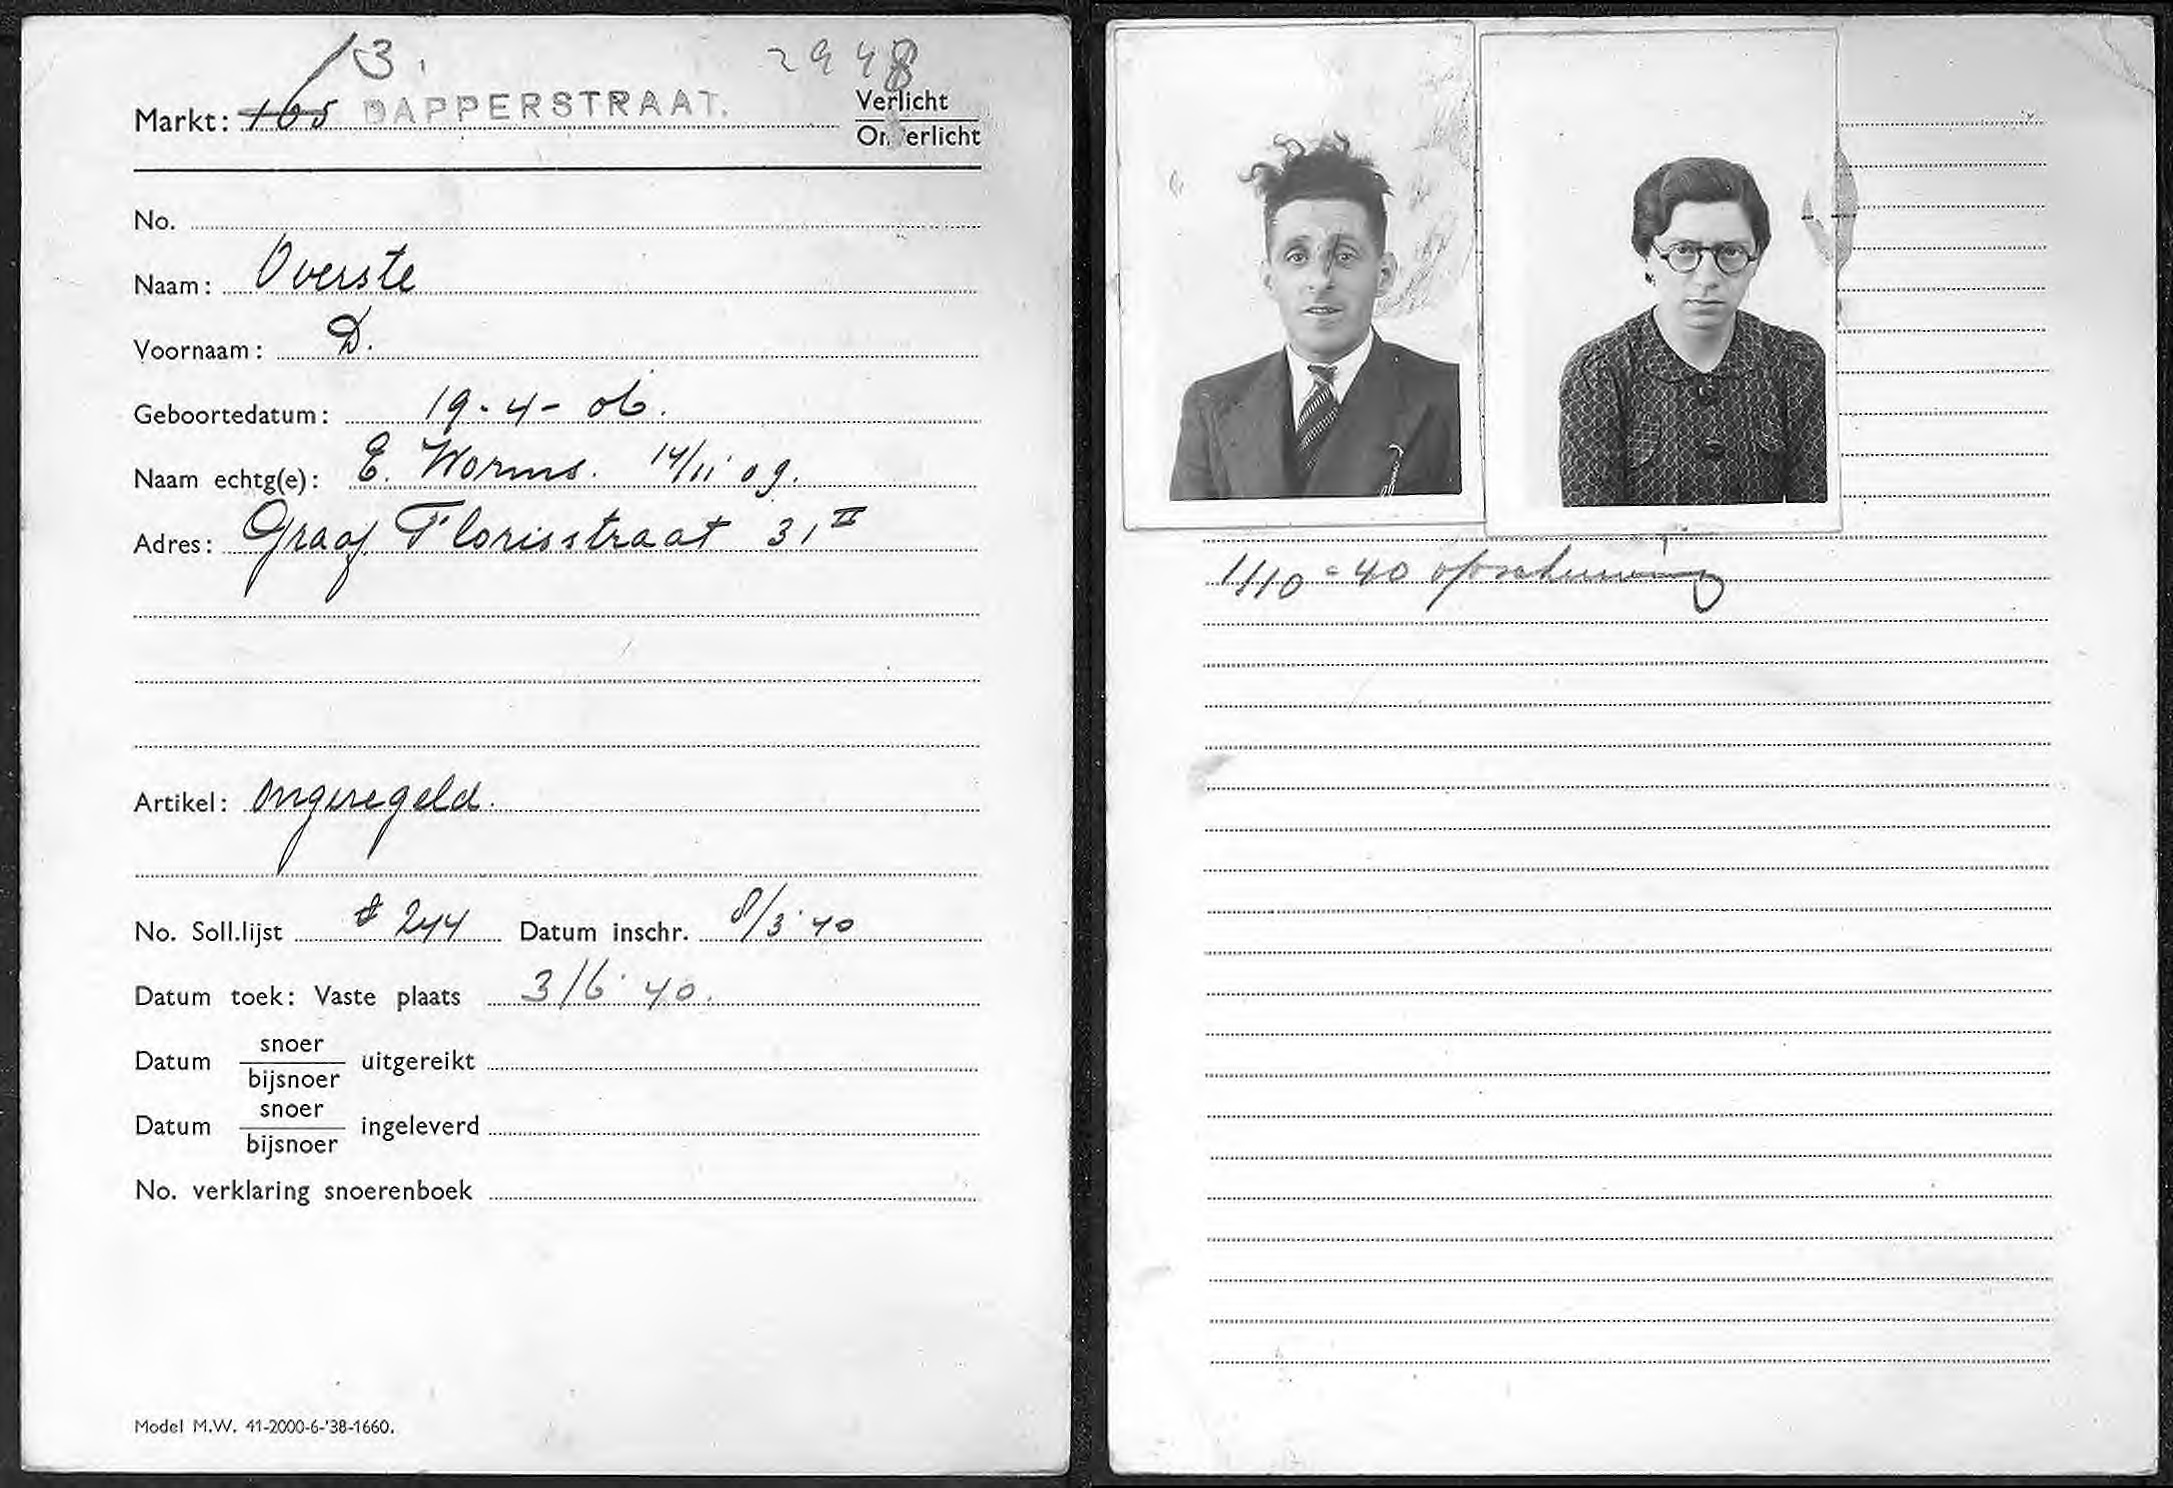 13.
2948
Markt: 165 DAPPERSTRAAT.
Verlicht
Onverlicht
No.
Naam: Overste
Voornaam: D.
Geboortedatum: 19-4-06.
Naam echtg(e): E. Worms. 14/11 '09.
Adres: Graaf Florisstraat 31 II
Artikel: ongeregeld.
No. Soll.lijst 244 Datum inschr. 8/3 '40
Datum toek: Vaste plaats 3/6 '40.
Datum snoer/bijsnoer uitgereikt
Datum snoer/bijsnoer ingeleverd
No. verklaring snoerenboek
Model M.W. 41-2000-6-'38-1660.
1/10 = 40 opschuiving